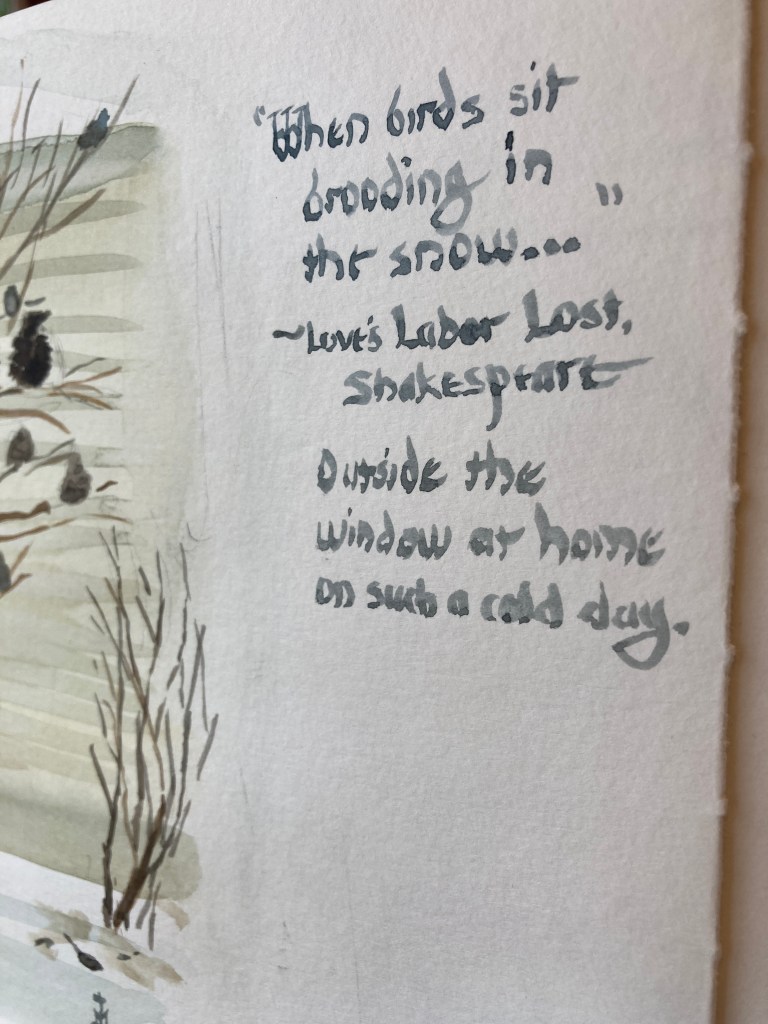 "When birds sit
brooding in
the snow..."
~Love's Labor Lost,
Shakespeare
Outside the
window at home
on such a cold day.